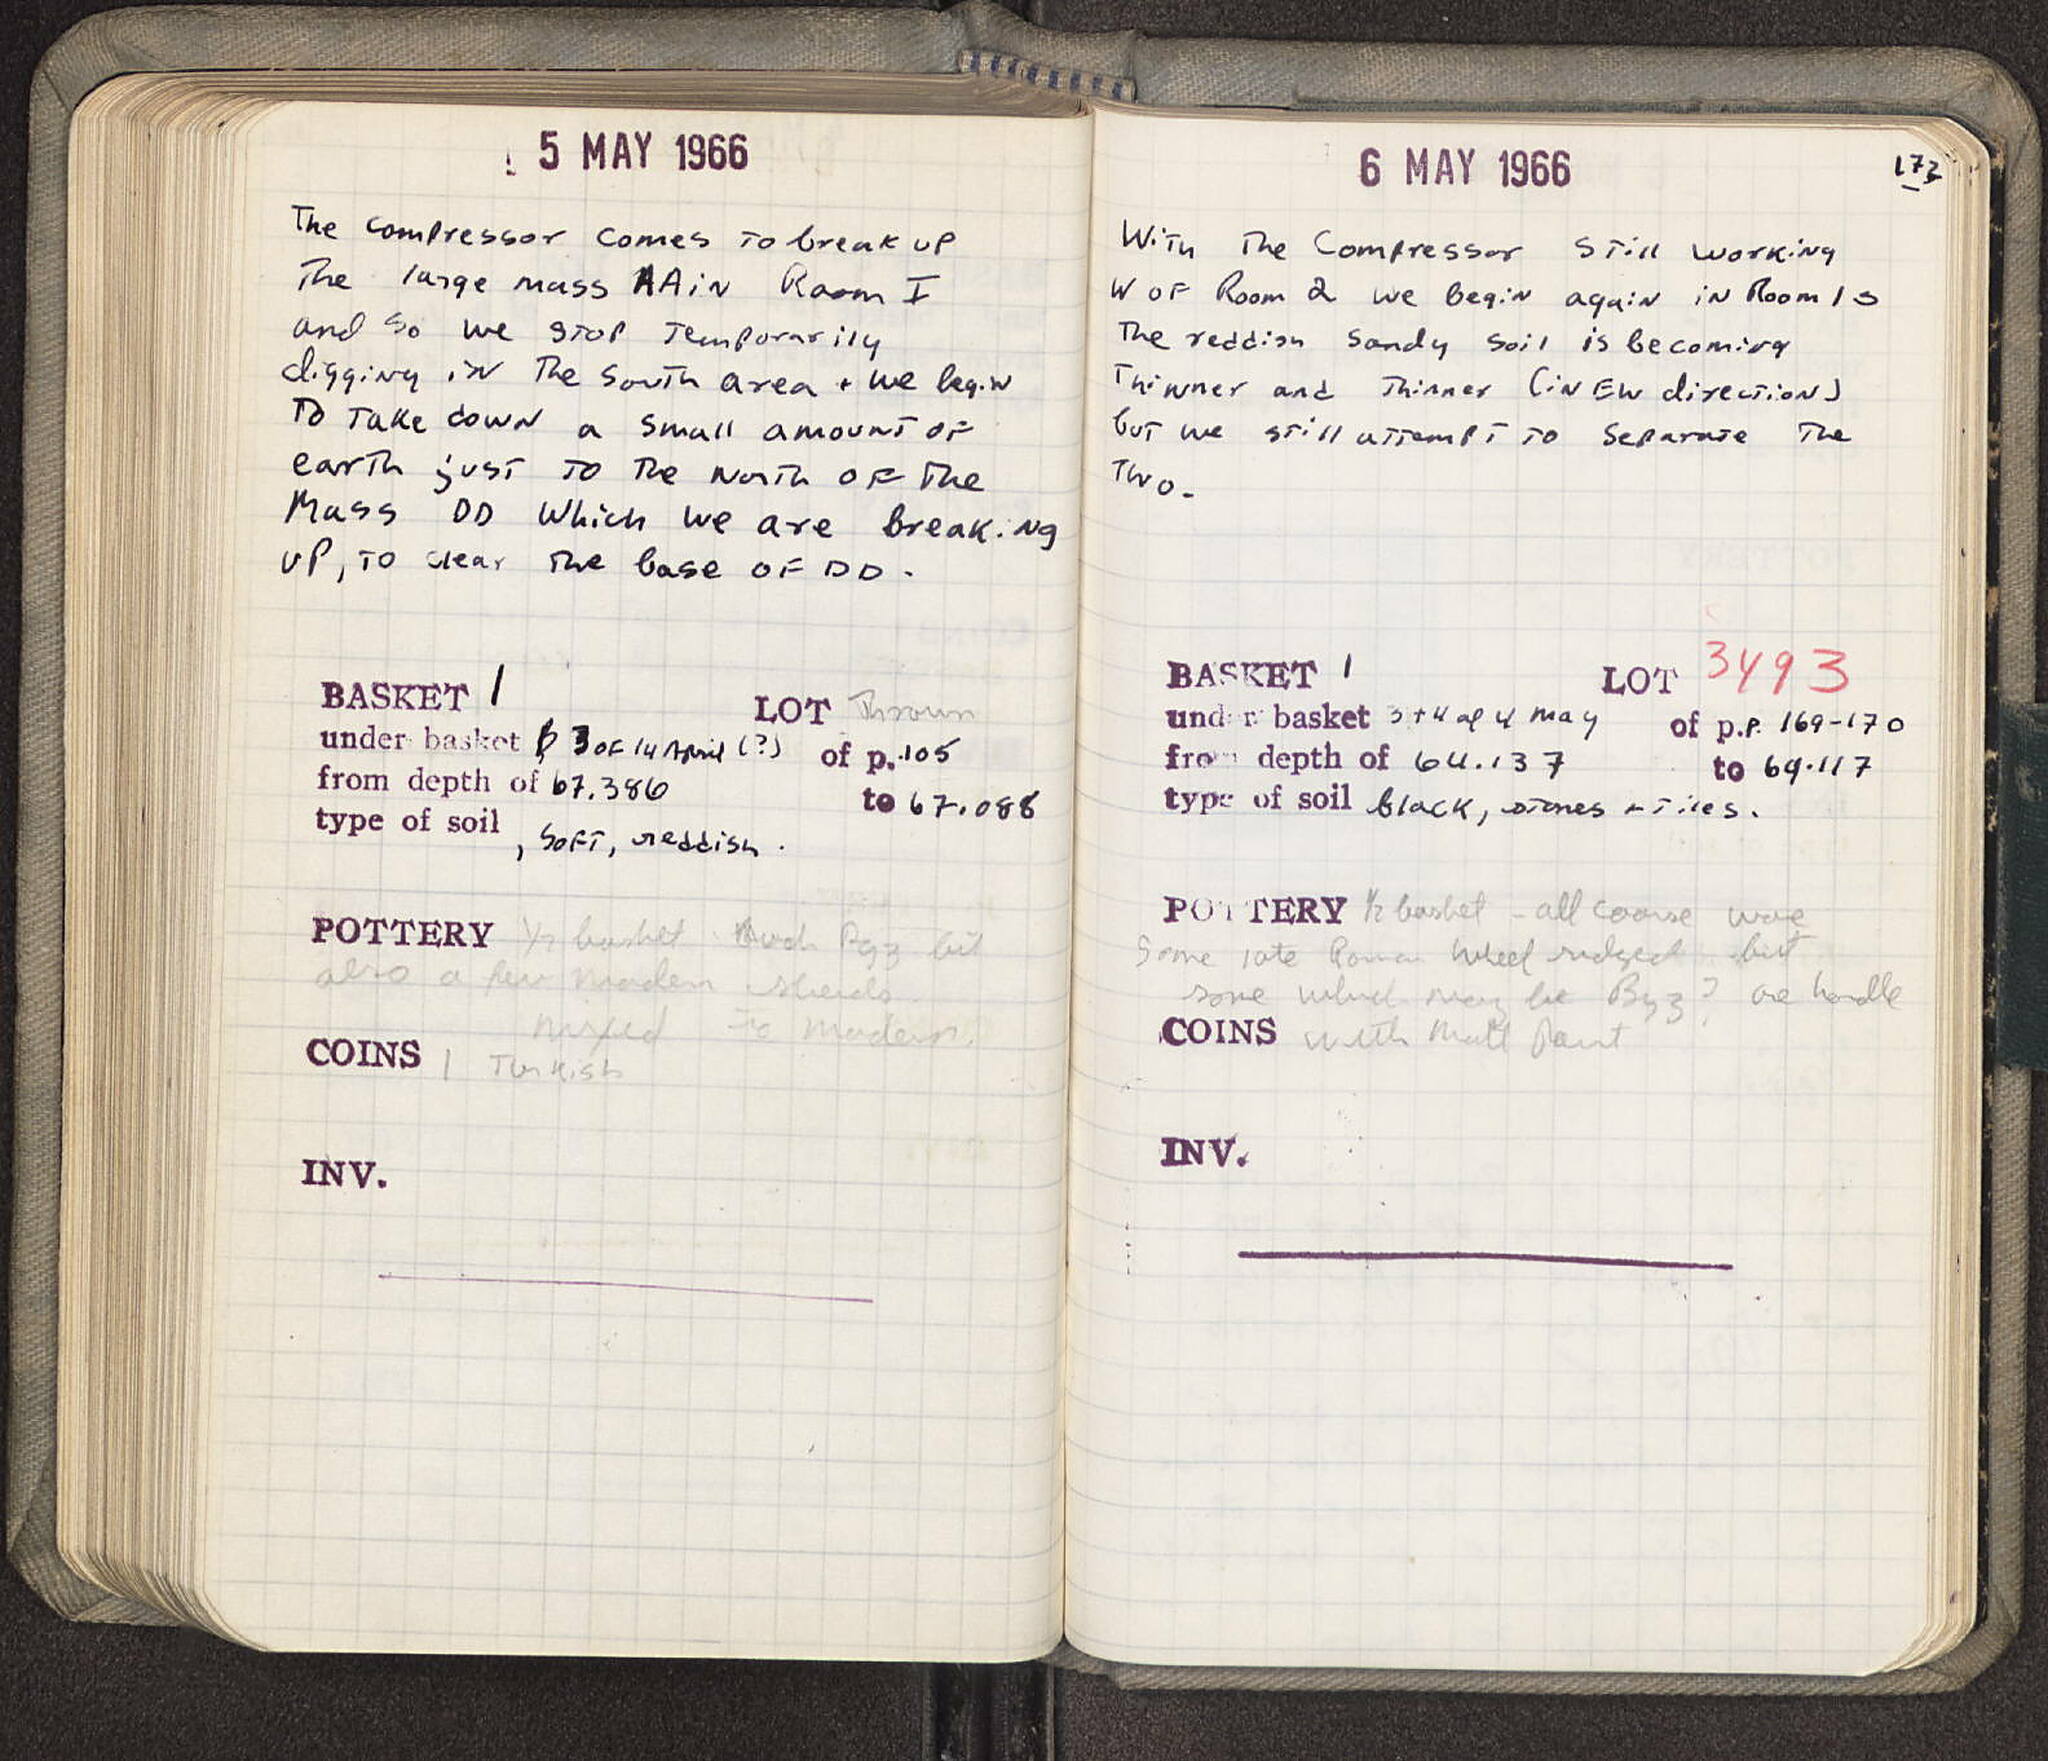 5 MAY 1966
The compressor comes to break up
the large mass AA in Room I
and so we stop temporarily
digging in the south area + we begin
to take down a small amount of
earth just to the north of the
Mass DD which we are breaking
up, to clear the base of DD.
BASKET 1 LOT Thrown
under basket 3 of 14 April (?) of p. 105
from depth of 67.386 to 67.088
type of soil , soft, reddish.
POTTERY 1/2 basket. Much Byz but
also a few modern sherds.
mixed to modern.
COINS 1 Turkish
INV.
6 MAY 1966
173
With the compressor still working
W of Room 2 we begin again in Room 1 S
The reddish sandy soil is becoming
thinner and thinner (in EW direction)
but we still attempt to separate the
two.
BASKET 1 LOT 3493
under basket 3+4 of 4 May of p.p. 169-170
from depth of 64.137 to 64.117
type of soil black, stones + tiles.
POTTERY 1/2 basket - all coarse ware
Some late Roman wheel ridged but
some which may be Byz? one handle
COINS with matt paint
INV.